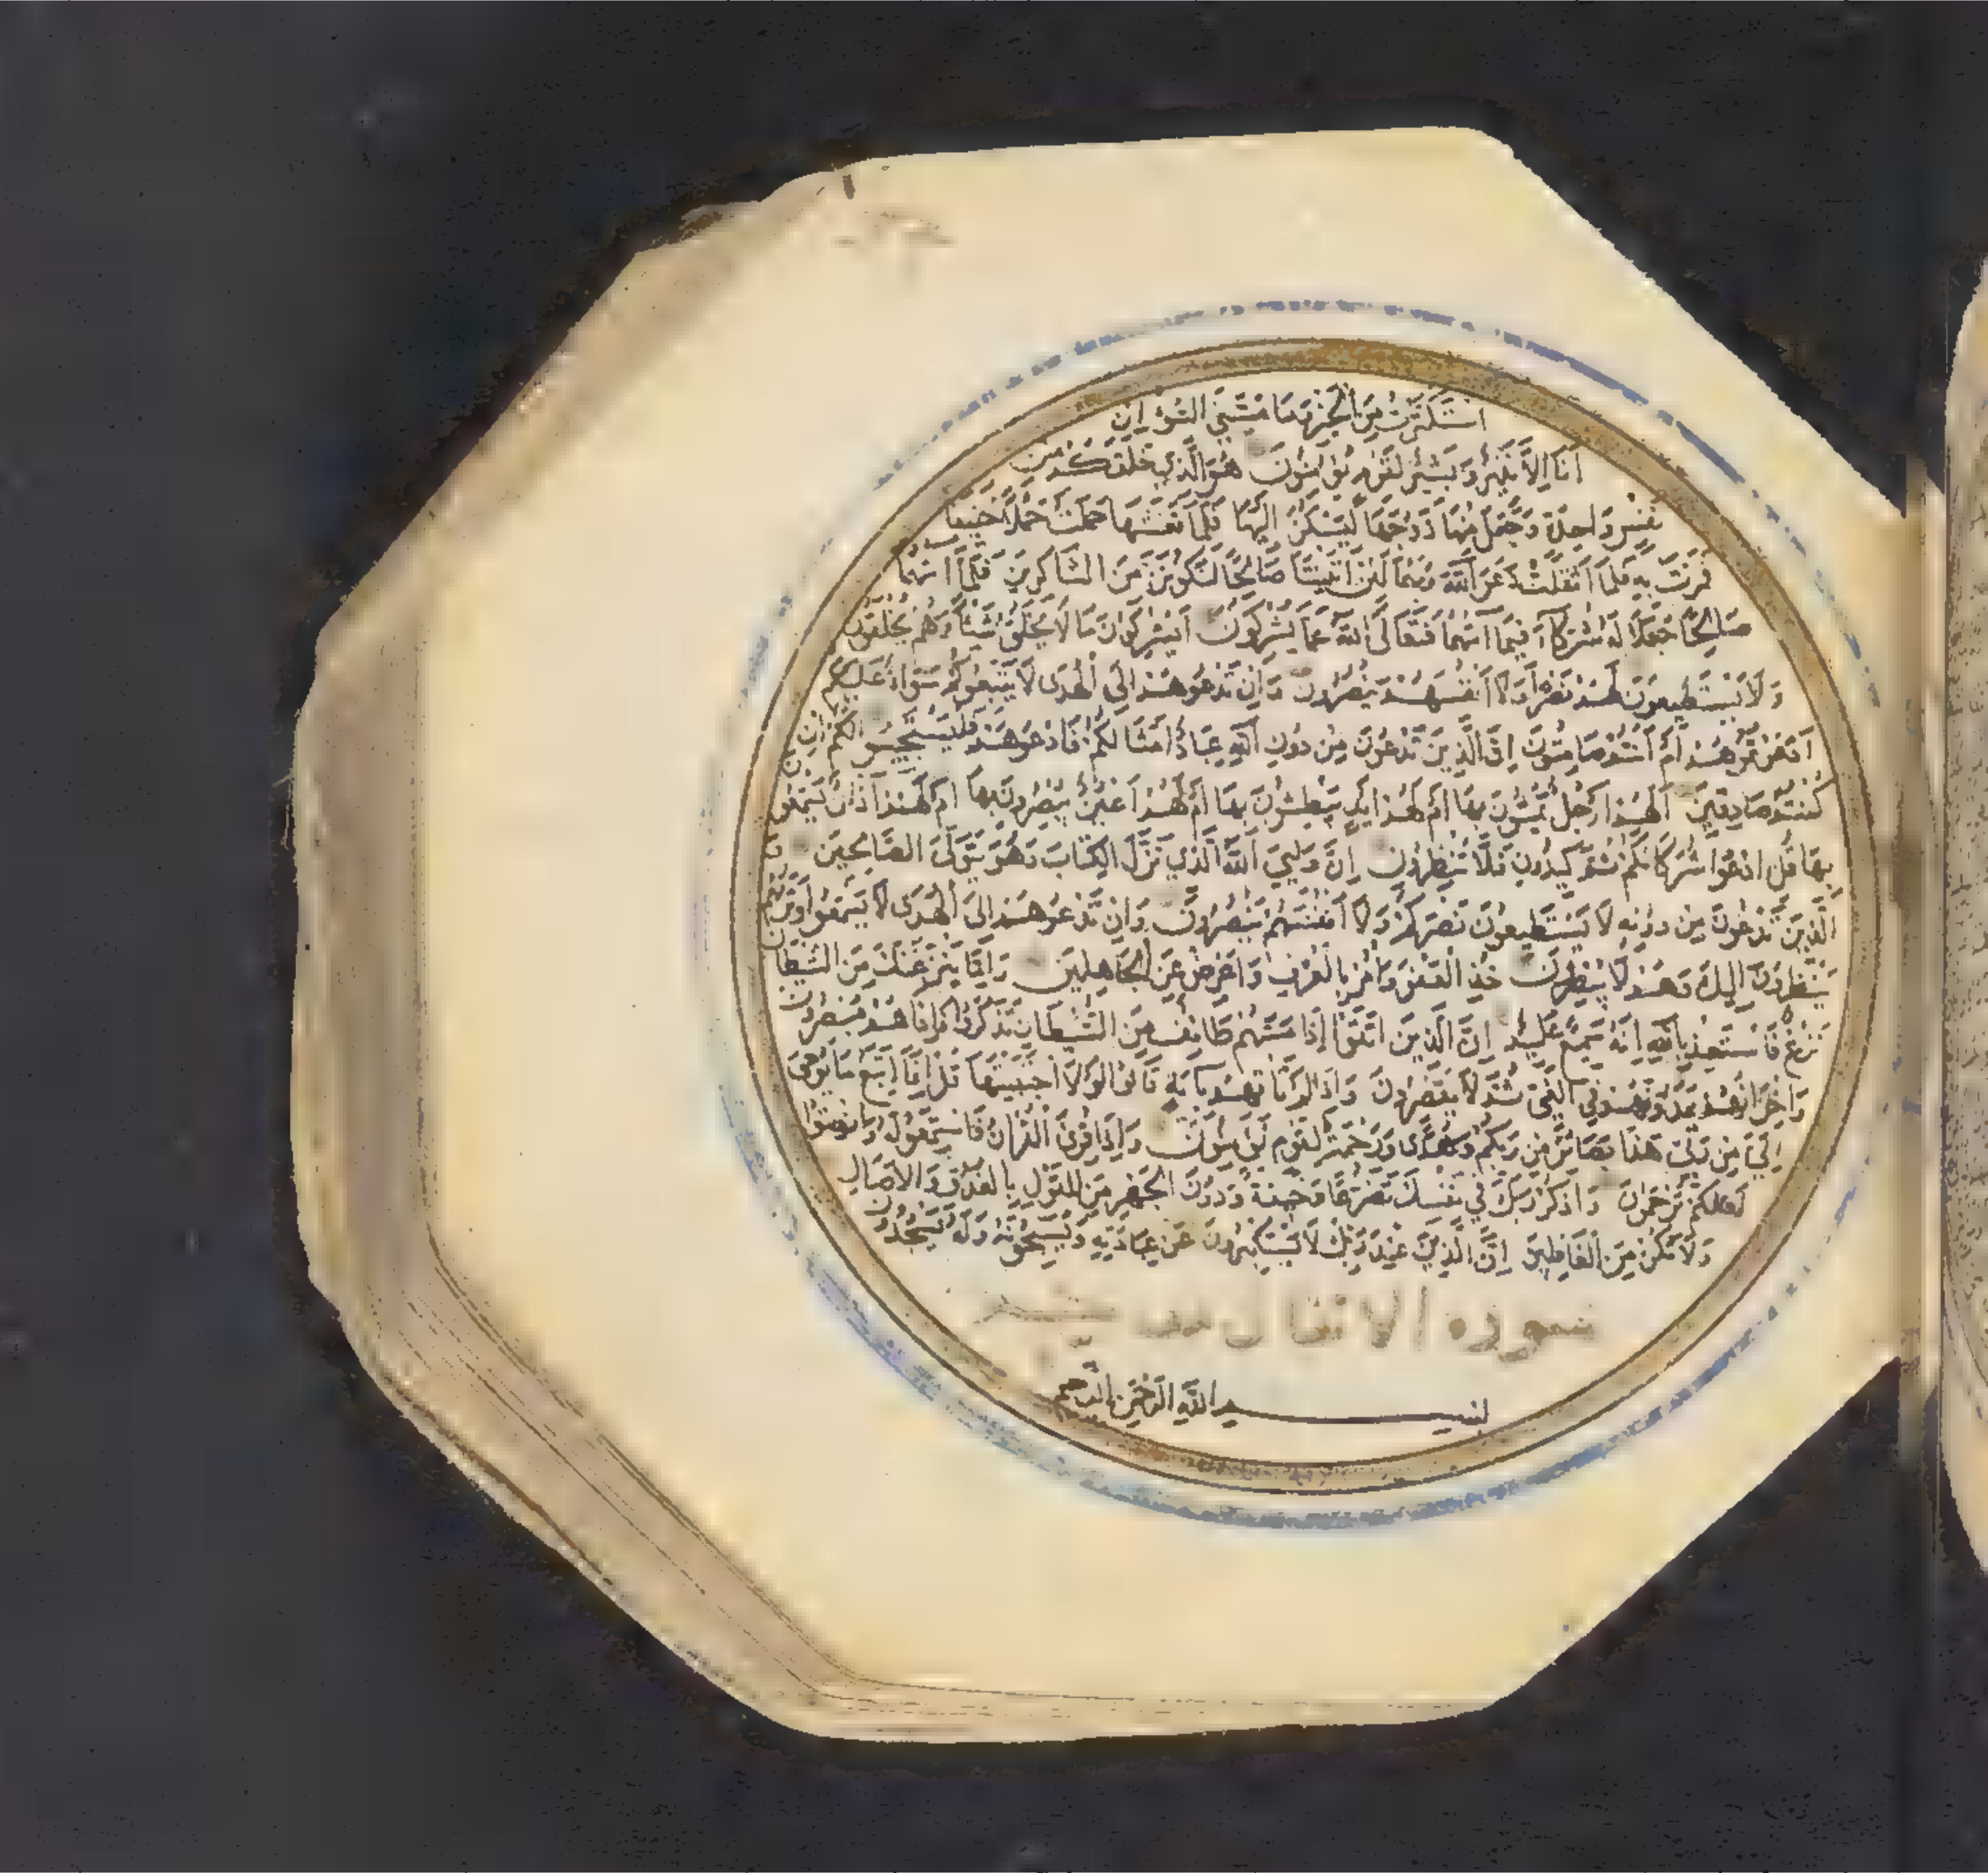 استكثرت من الخير وما مسني السوء إن
أنا إلا نذير وبشير لقوم يؤمنون هو الذي خلقكم من
نفس واحدة وجعل منها زوجها ليسكن إليها فلما تغشها حملت حملا خفيفا
فمرت به فلما أثقلت دعوا الله ربهما لئن آتيتنا صالحا لنكونن من الشاكرين فلما آتهما
صالحا جعلا له شركاء فيما آتهما فتعالى الله عما يشركون أيشركون ما لا يخلق شيئا وهم يخلقون
ولا يستطيعون لهم نصرا ولا أنفسهم ينصرون وإن تدعوهم إلى الهدى لا يتبعوكم سواء عليكم
أدعوتموهم أم أنتم صامتون إن الذين تدعون من دون الله عباد أمثالكم فادعوهم فليستجيبوا لكم إن
كنتم صادقين ألهم أرجل يمشون بها أم لهم أيد يبطشون بها أم لهم أعين يبصرون بها أم لهم آذان يسمعون
بها قل ادعوا شركاءكم ثم كيدون فلا تنظرون إن وليي الله الذي نزل الكتاب وهو يتولى الصالحين
والذين تدعون من دونه لا يستطيعون نصركم ولا أنفسهم ينصرون وإن تدعوهم إلى الهدى لا يسمعوا وتراهم
ينظرون إليك وهم لا يبصرون خذ العفو وأمر بالعرف وأعرض عن الجاهلين وإما ينزغنك من الشيطان
نزغ فاستعذ بالله إنه سميع عليم إن الذين اتقوا إذا مسهم طائف من الشيطان تذكروا فإذا هم مبصرون
وإخوانهم يمدونهم في الغي ثم لا يقصرون وإذا لم تأتهم بآية قالوا لولا اجتبيتها قل إنما أتبع ما يوحى
إلي من ربي هذا بصائر من ربكم وهدى ورحمة لقوم يؤمنون وإذا قرئ القرآن فاستمعوا له وأنصتوا
لعلكم ترحمون واذكر ربك في نفسك تضرعا وخيفة ودون الجهر من القول بالغدو والآصال
ولا تكن من الغافلين إن الذين عند ربك لا يستكبرون عن عبادته ويسبحونه وله يسجدون
سورة الانفال
بسم الله الرحمن الرحيم